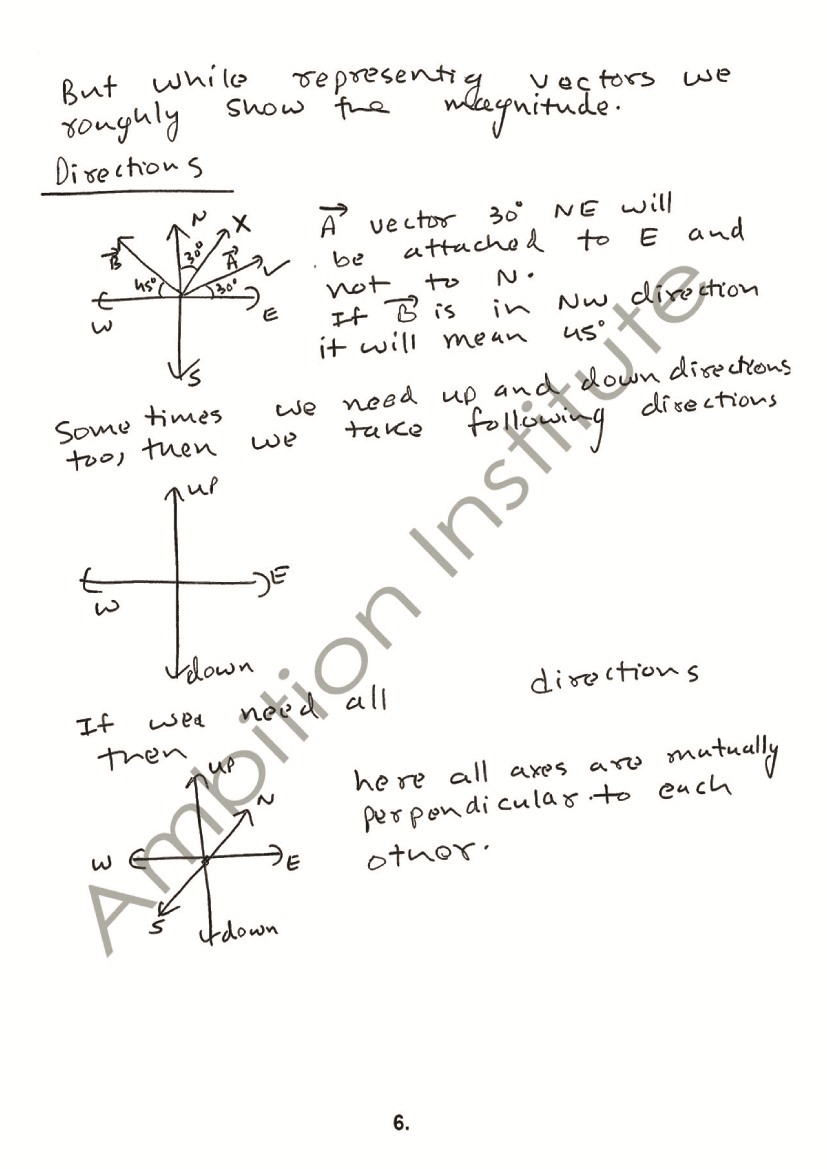 But while representig vectors we
roughly show the magnitude.
Directions
N
X
B
30°
A
45°
30°
W
E
S
A vector 30° NE will
be attached to E and
not to N.
If B is in NW direction
it will mean 45°
Some times we need up and down directions
too, then we take following directions
up
W
E
down
If wea need all directions
then
up
N
W
E
S
down
here all axes are mutually
perpendicular to each
other.
Ambition Institute
6.